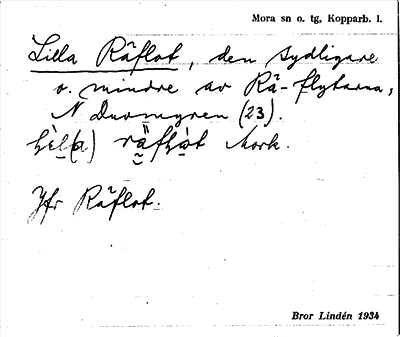 Mora sn o. tg, Kopparb. l.
Lilla Räflot, den sydligare
o. mindre av Rä-flytarna,
N Durmyren (23).
Mork.
Jfr Räflot.
Bror Lindén 1934